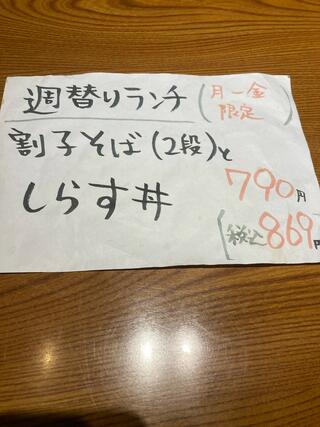 週替りランチ(月ー金
限定)
割子そば(2段)と
しらす丼
790円
(税込869円